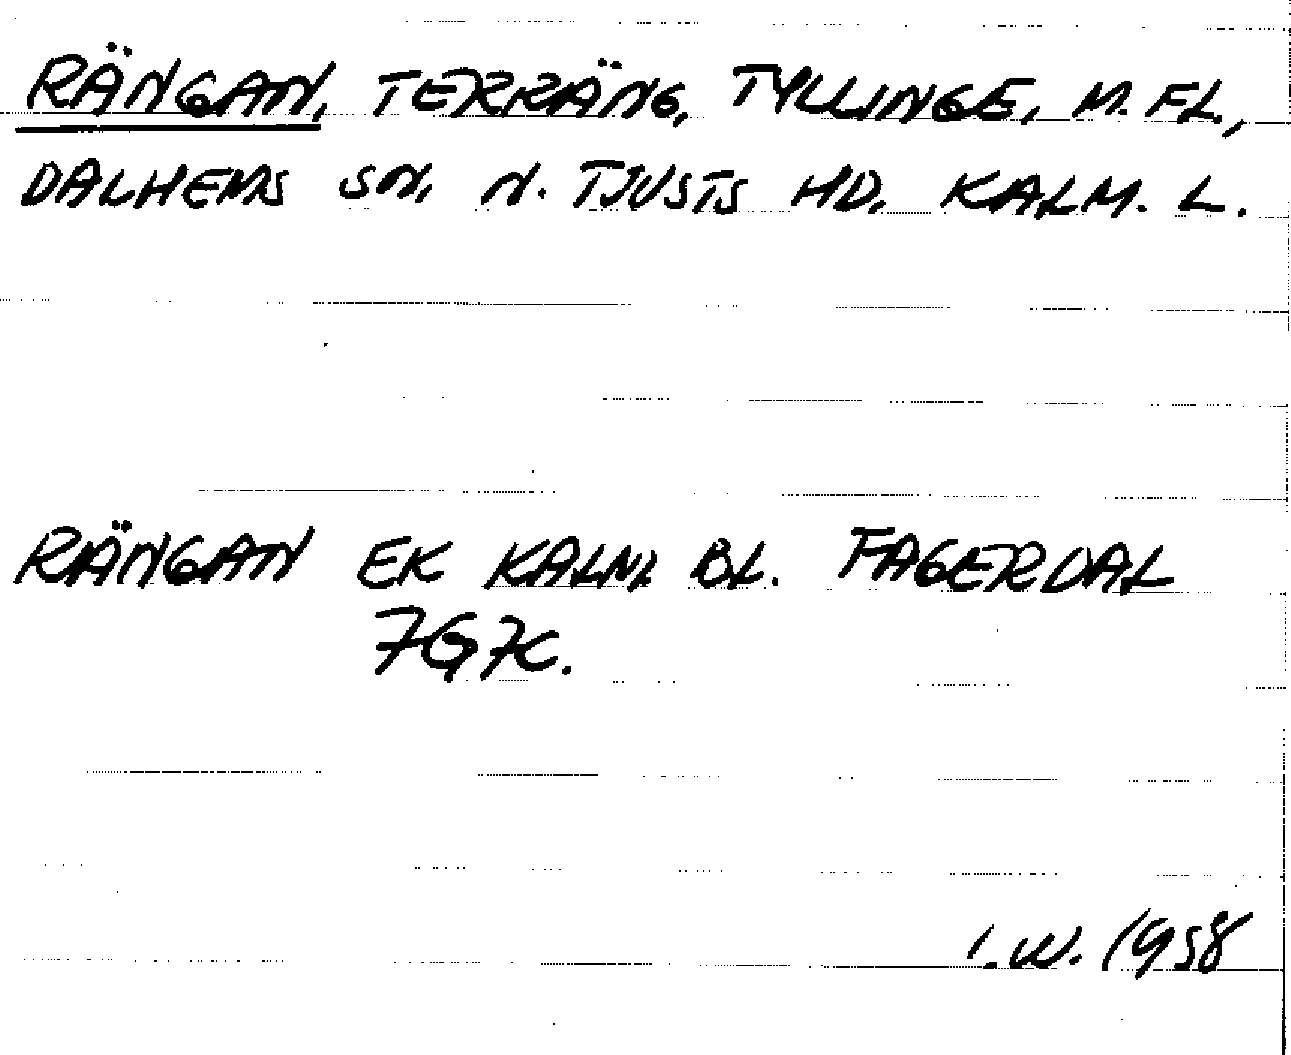 RÄNGAN, TERRÄNG, TYLLINGE, M. FL.,
DALHEMS SN, N. TJUSTS HD, KALM. L.
RÄNGAN EK KALM BL. FAGERDAL
7G7C.
I.W. 1958